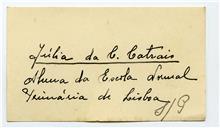 Júlia da C. Catraio
Aluna da Escola Normal
Primária de Lisboa
S/G